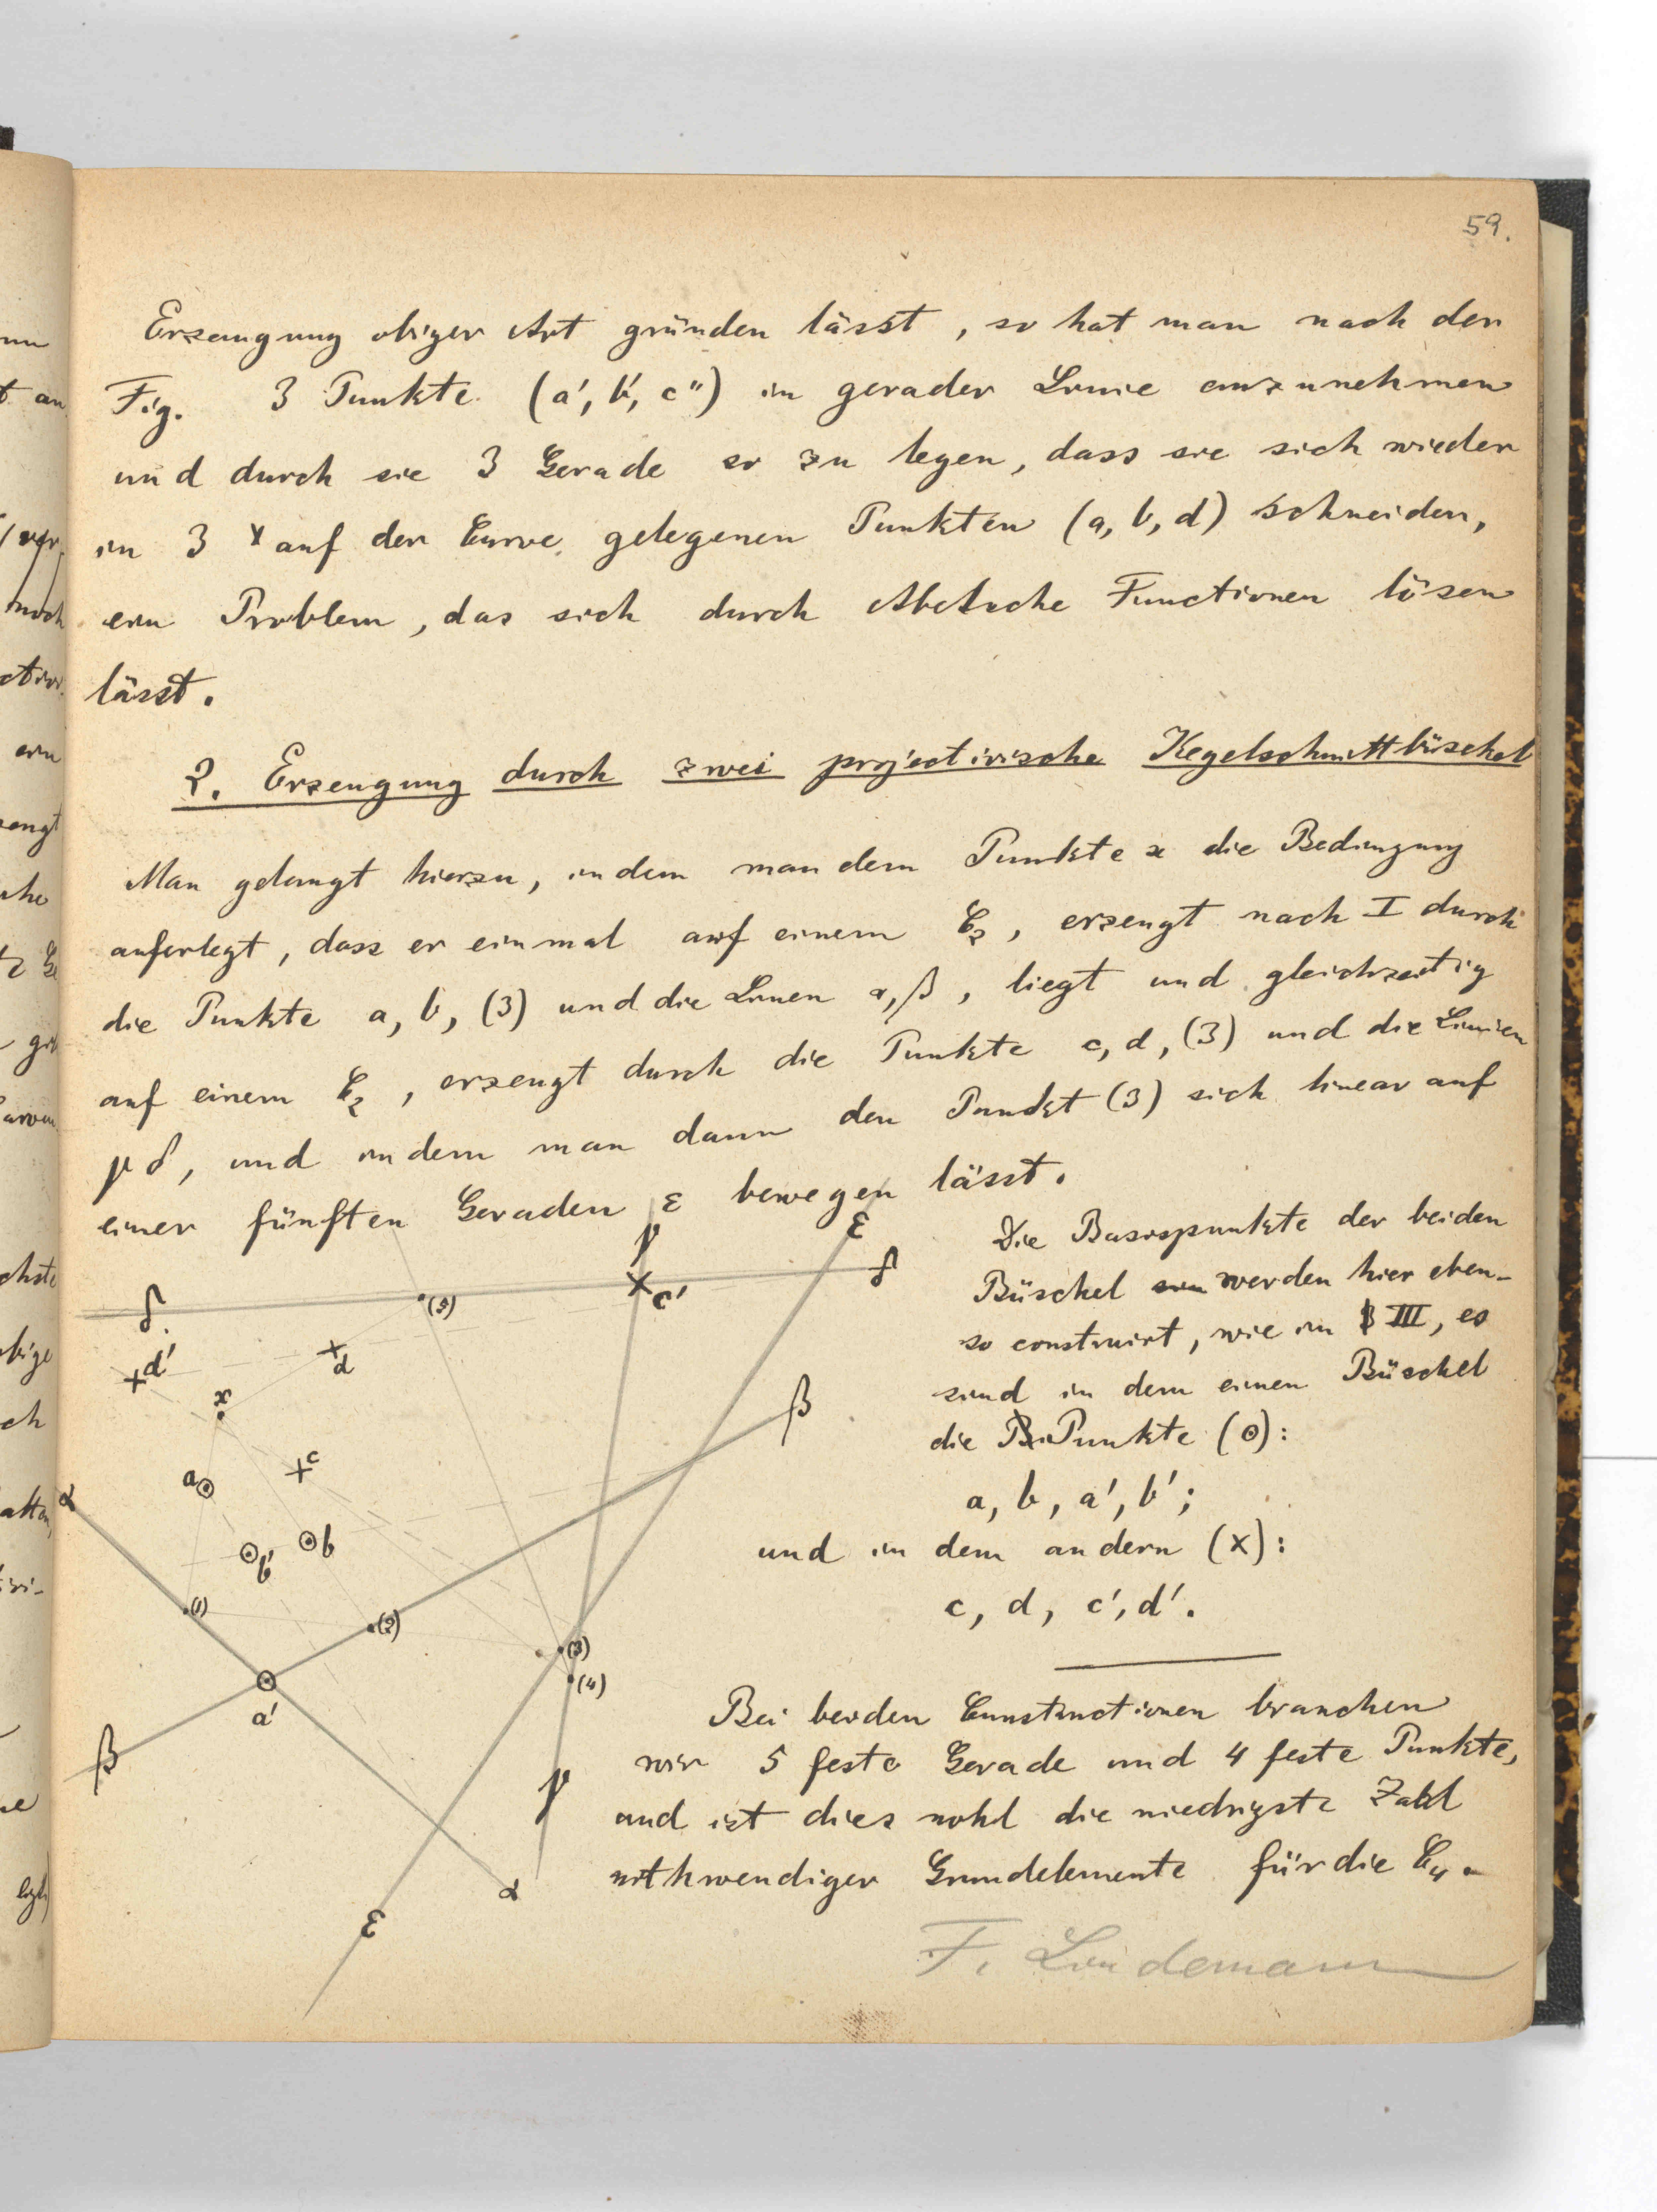 59.
Erzeugung obiger Art gründen lässt, so hat man nach der
Fig. 3 Punkte (a', b', c'') in gerader Linie anzunehmen
und durch sie 3 Gerade so zu legen, dass sie sich wieder
in 3 auf der Curve gelegenen Punkten (a, b, d) schneiden,
ein Problem, das sich durch Abelsche Functionen lösen
lässt.
2. Erzeugung durch zwei projectivische Kegelschnittbüschel
Man gelangt hierzu, indem man dem Punkte x die Bedingung
auferlegt, dass er einmal auf einem C₂, erzeugt nach I durch
die Punkte a, b, (3) und die Linien α, β, liegt und gleichzeitig
auf einem C₂, erzeugt durch die Punkte c, d, (3) und die Linien
γ δ, und indem man dann den Punkt (3) sich linear auf
einer fünften Geraden ε bewegen lässt.
Die Basispunkte der beiden
Büschel werden hier eben-
so construirt, wie in III, es
sind in dem einen Büschel
die Punkte (⊙):
a, b, a', b';
und in dem andern (x):
c, d, c', d'.
γ
ε
δ
(5)
c'
δ
d'
d
x
β
c
a
α
b
b'
(1)
(2)
(3)
(4)
a'
β
γ
α
ε
Bei beiden Constructionen brauchen
wir 5 feste Gerade und 4 feste Punkte,
und ist dies wohl die niedrigste Zahl
nothwendiger Grundelemente für die C₄.
F. Lindemann